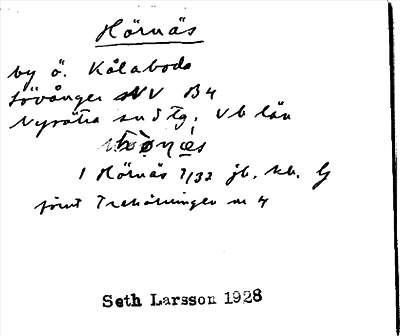 Hörnäs
by ö. Kålaboda
Lövånger NV B4
Nysätra sn d tg. Vb län
1 Hörnäs 7/32 jb. kb. G
jämt Trehörningen nr 4
Seth Larsson 1928